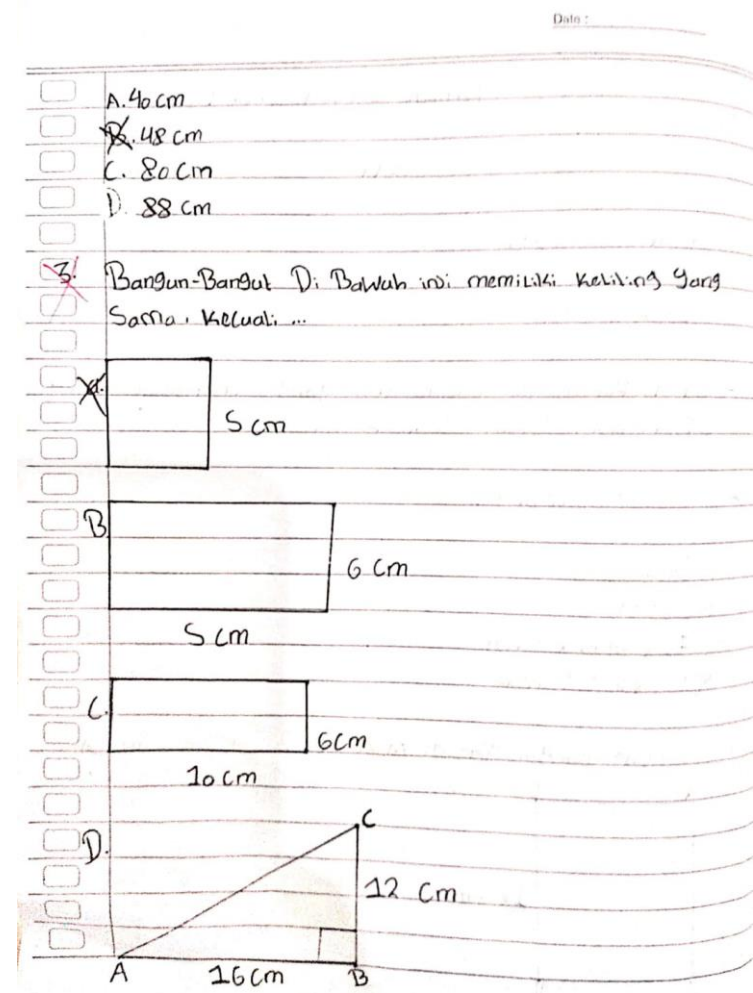 Date :
A. 40 cm
B. 48 cm
C. 80 cm
D. 88 cm
3. Bangun-Bangut Di Bawah ini memiliki Keliling yang
Sama. Kecuali ...
a.
5 cm
B
6 cm
5 cm
C.
6 cm
10 cm
D.
C
12 cm
A
16 cm
B